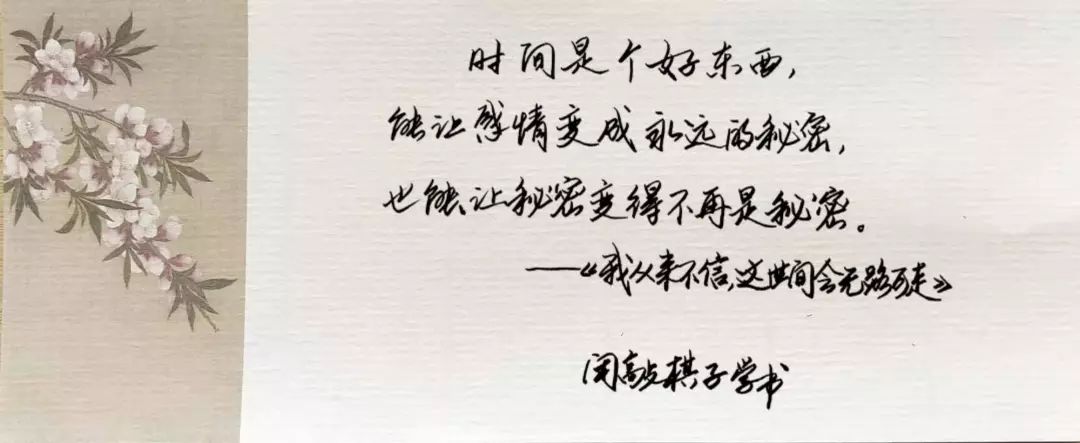 时间是个好东西,
能让感情变成永远的秘密,
也能让秘密变得不再是秘密。
——《我从来不信,这世间会无路可走》
闲敲棋子学书